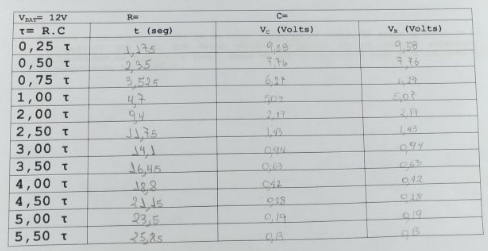 V_BAT= 12V R= C=
τ= R.C t (seg) V_C (Volts) V_R (Volts)
0,25 τ 1,175 9,58 9,58
0,50 τ 2,35 7,76 7,76
0,75 τ 3,525 6,27 6,27
1,00 τ 4,7 5,07 5,07
2,00 τ 9,4 2,19 2,19
2,50 τ 11,75 1,43 1,43
3,00 τ 14,1 0,94 0,94
3,50 τ 16,45 0,63 0,63
4,00 τ 18,8 0,42 0,42
4,50 τ 21,15 0,28 0,28
5,00 τ 23,5 0,19 0,19
5,50 τ 25,85 0,13 0,13